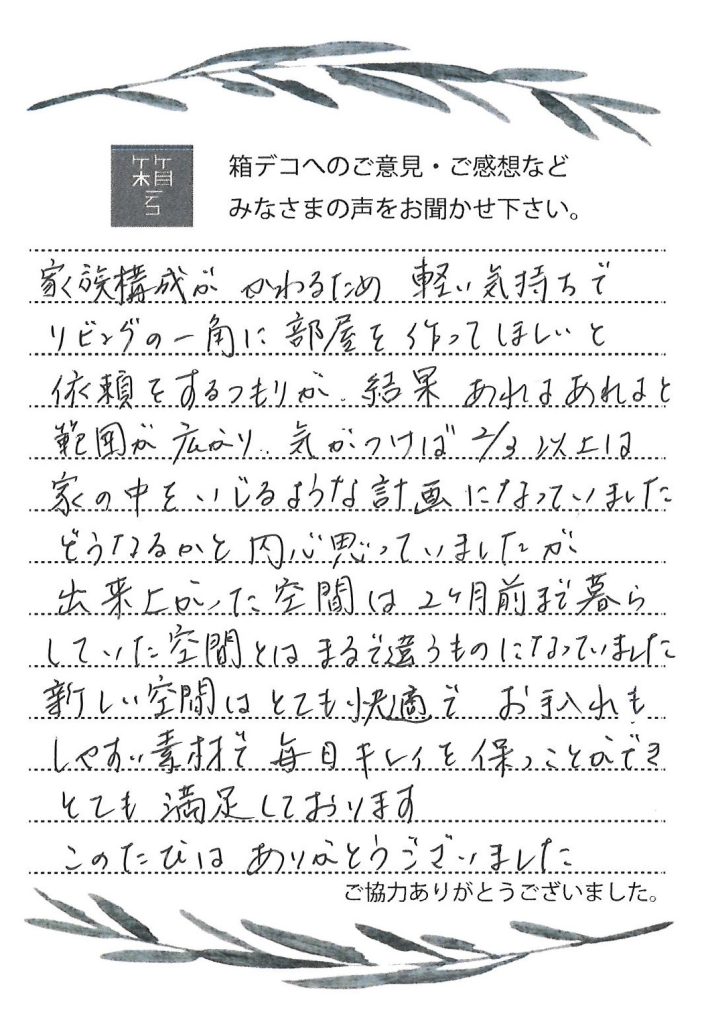 箱デコ
箱デコへのご意見・ご感想など
みなさまの声をお聞かせ下さい。
家族構成が かわるため 軽い気持ちで
リビングの一角に 部屋を 作ってほしいと
依頼をするつもりが、結果 あれはあれはと
範囲が 広がり、気がつけば 2/3 以上は
家の中を いじるような 計画に なっていました
どうなるかと 内心思っていましたが
出来上がった 空間は 2ヶ月前まで 暮ら
していた 空間とは まるで違うものになっていました
新しい空間は とても 快適で お手入れも
しやすい 素材で 毎日 キレイを 保つことができ
とても 満足しております
このたびは ありがとうございました
ご協力ありがとうございました。